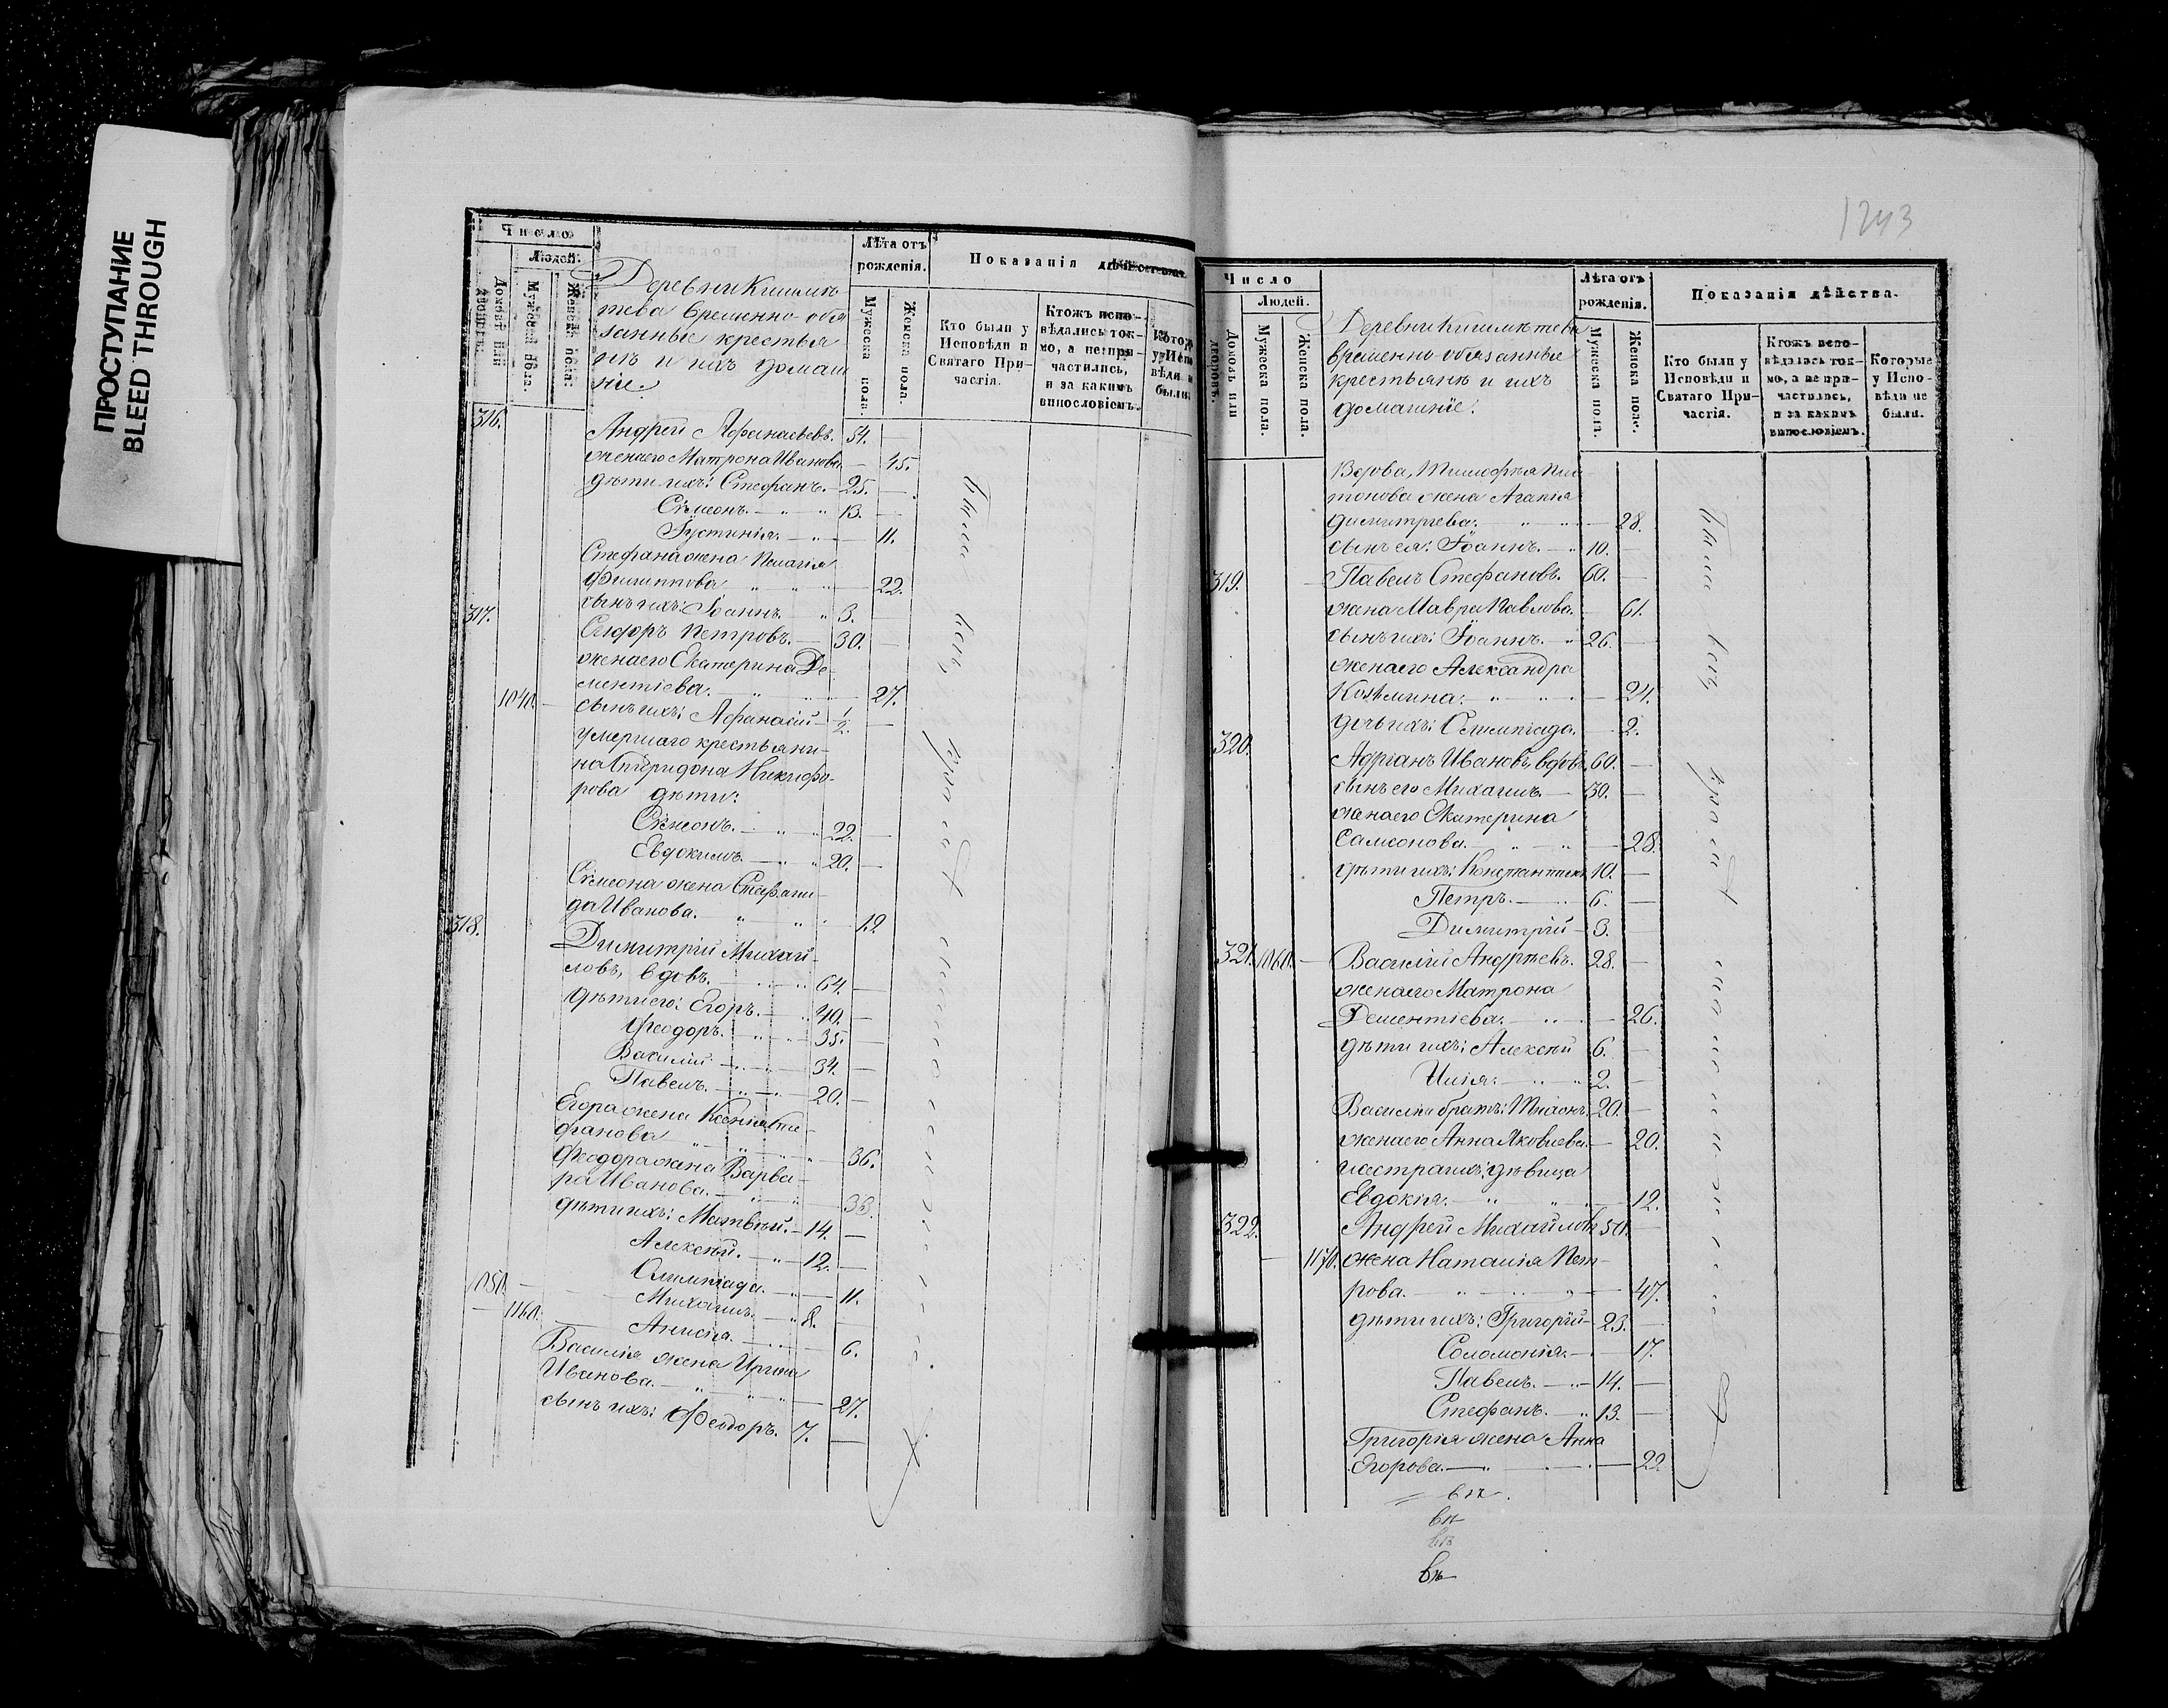 ПРОСТУПАНИЕ
BLEED THROUGH
Число
Людей.
Домовъ или дворовъ.
Мужеска пола.
Женска пола.
Деревни
временно обя
занные крестья
нъ и ихъ домаш
ніе.
Лѣта отъ
рожденія.
Мужеска пола.
Женска пола.
Показанія дѣйства.
Кто были у
Исповѣди и
Святаго При-
частія.
Ктожъ испо-
вѣдались ток-
мо, а не при-
частились,
и за какимъ
винословіемъ.
316. Андрей Афанасьевъ. 54. —
жена его Матрона Иванова — 45.
дѣти ихъ: Стефанъ. 25. —
Сѵмеонъ. — „ „ 13. —
Іустинія. — „ — 11.
Стефана жена Пелагія
Филиппова „ „ „ — 22.
сынъ ихъ: Іоаннъ. „ 3. —
317. Сидоръ Петровъ. — 30. —
жена его Екатерина Де-
ментіева. „ „ — 27.
1040. — сынъ ихъ: Афанасій — 1/2. —
умершаго крестьяни-
на Спиридона Никифо-
рова дѣти:
Сѵмеонъ. — „ „ 22. —
Евдокимъ. — „ „ 20. —
Сѵмеона жена Стефани-
да Иванова. „ „ — 19.
318. Димитрій Михай-
ловъ, вдовъ. — „ „ 64. —
дѣти его: Егоръ. — „ 40. —
Феодоръ. — „ — 35. —
Василій — „ — 34. —
Павелъ. — „ — 20. —
Егора жена Ксенія Сте-
фанова „ „ „ — 36.
Феодора жена Варва-
ра Иванова. — „ — 33.
дѣти ихъ: Матвѣй. — 14. —
Алексѣй. — „ — 12. —
Олимпіада. — „ — 11.
1050. — Михаилъ. — „ 8. —
— 1160. Анисія. — „ — 6.
Василія жена Ирина
Иванова. — „ „ „ — 27.
сынъ ихъ: Феодоръ. 7. —
1243
Число
Людей.
Домовъ или дворовъ.
Мужеска пола.
Женска пола.
Деревни
временно обязанные
крестьянъ и ихъ
домашніе.
Лѣта отъ
рожденія.
Мужеска пола.
Женска поле.
Показанія дѣйства.
Кто были у
Исповѣди и
Святаго При-
частія.
Ктожъ испо-
вѣдались ток-
мо, а не при-
частились,
и за какимъ
винословіемъ.
Которые
у Испо-
вѣди не
были.
Вдова, Тимофея Пла-
тонова жена Агапія
Димитріева. „ „ — 28.
сынъ ея: Іоаннъ. — „ 10. —
319. — Павелъ Стефановъ. 60. —
жена Мавра Павлова. — 61.
сынъ ихъ: Іоаннъ. „ 26. —
жена его Александра
Козьмина. „ „ — 24.
дочь ихъ: Олимпіада. — 2.
320. Адріанъ Ивановъ, вдовъ, 60. —
сынъ его Михаилъ. — 30. —
жена его Екатерина
Самсонова. „ „ — 28.
дѣти ихъ: Константинъ 10. —
Петръ. — „ 6. —
Димитрій — 3. —
321. 1060. — Василій Андреевъ. 28. —
жена его Матрона
Дементіева. — „ — 26.
дѣти ихъ: Алексѣй 6. —
Илія. — „ „ 2. —
Василія братъ: Тихонъ 20. —
жена его Анна Яковлева. — 20.
сестра ихъ: дѣвица
Евдокія. „ „ — 12.
322. Андрей Михайловъ 50. —
— 1170. жена Наталія Пет-
рова. — „ „ „ — 47.
дѣти ихъ: Григорій — 23. —
Соломонія. — — 17.
Павелъ. — „ — 14. —
Стефанъ. — „ 13. —
Григорія жена Анна
Егорова. — „ „ — 22